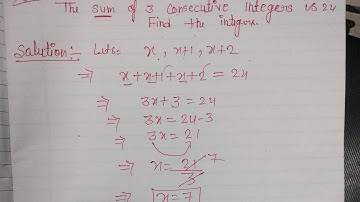 The sum of 3 consecutive Integers is 24
Find the intigers.
Salution:- Lets= x, x+1, x+2
⇒ x+x+1+x+2 = 24
⇒ 3x+3 = 24
⇒ 3x = 24-3
⇒ 3x = 21
⇒ x = 21/3 7
⇒ x=7